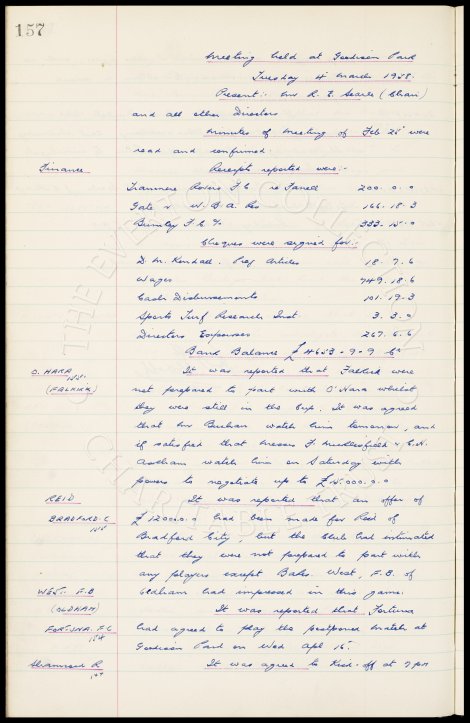 157
Meeting held at Goodison Park
Tuesday 4th March 1958.
Present:- Mr R. E. Searle (Chair)
and all other Directors
Minutes of meeting of Feb 25 were
read and confirmed.
Finance
Receipts reported were:-
Tranmere Rovers F.C. re Farrell 200. 0. 0
Gate v. W.B.A. Res 166. 18. 3
Burnley F.C. % 333. 15. 0
Cheques were signed for:-
D. M. Kendall. Prog Articles 18. 7. 6
Wages 749. 18. 6
Cash Disbursements 101. 19. 3
Sports Turf Research Inst 3. 3. 0
Directors Expenses 267. 6. 6
Bank Balance £4653-9-9
O. HARA
(FALKIRK)
It was reported that Falkirk were
not prepared to part with O'Hara whilst
they were still in the Cup. It was agreed
that Mr Buchan watch him tomorrow, and
if satisfied that Messrs F. Micklesfield &
watch him on Saturday with
powers to negotiate up to £15,000.0.0
REID
BRADFORD. C
It was reported that an offer of
£12000.0 had been made for Reid of
Bradford City, but the Club had intimated
that they were not prepared to part with
any players except Bakes. West, F.B. of
WEST. F.B
(OLDHAM)
Oldham had impressed in this game.
It was reported that Fortuna
FORTUNA. F.C
had agreed to play the postponed match at
Goodison Park on Wed Apl 16.
Shamrock R
It was agreed to Kick-off at 7pm
THE EVERTON COLLECTION
CHARITABLE